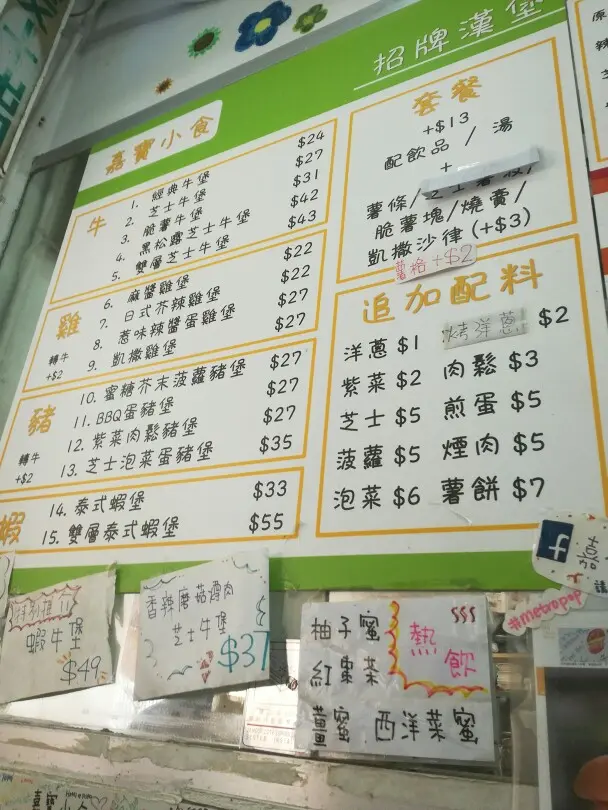 招牌漢堡
嘉寶小食
牛
1. 經典牛堡 $24
2. 芝士牛堡 $27
3. 脆薯牛堡 $31
4. 黑松露芝士牛堡 $42
5. 雙層芝士牛堡 $43
雞
轉牛
+$2
6. 麻醬雞堡 $22
7. 日式芥辣雞堡 $22
8. 惹味辣醬蛋雞堡 $27
9. 凱撒雞堡 $27
豬
轉牛
+$2
10. 蜜糖芥末菠蘿豬堡 $27
11. BBQ蛋豬堡 $27
12. 紫菜肉鬆豬堡 $27
13. 芝士泡菜蛋豬堡 $35
蝦
14. 泰式蝦堡 $33
15. 雙層泰式蝦堡 $55
套餐
+$13
配飲品 / 湯
+
薯條/
脆薯塊/燒賣/
凱撒沙律 (+$3)
薯格 +$2
追加配料
洋蔥 $1 烤洋蔥 $2
紫菜 $2 肉鬆 $3
芝士 $5 煎蛋 $5
菠蘿 $5 煙肉 $5
泡菜 $6 薯餅 $7
特別推!!
蝦牛堡
$49
香辣磨菇煙肉
芝士牛堡
$37
柚子蜜
紅棗茶
薑蜜 西洋菜蜜
熱飲
f
#metropop